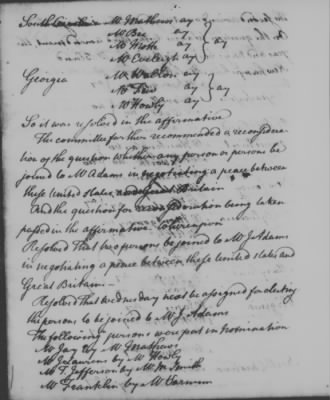 South Carolina Mr Mathews ay
Mr Bee ay
Mr Motte ay } ay
Mr Eveleigh ay
Georgia Mr Walton ay
Mr Few ay } ay
Mr Howly ay
So it was resolved in the affirmative
The committee further recommended a reconsidera-
tion of the question whether any person or persons be
joined to Mr Adams in negotiating a peace between
these united states and Great Britain
And the question for reconsideration being taken
passed in the affirmative. Whereupon
Resolved That two persons be joined to Mr J. Adams
in negotiating a peace between these united states and
Great Britain.
Resolved That wednesday next be assigned for electing
the persons to be joined to Mr J. Adams
The following persons were put in nomination
Mr Jay by Mr Mathews
Mr Laurens by Mr Howly
Mr T. Jefferson by Mr M. Smith
Mr Franklin by Mr